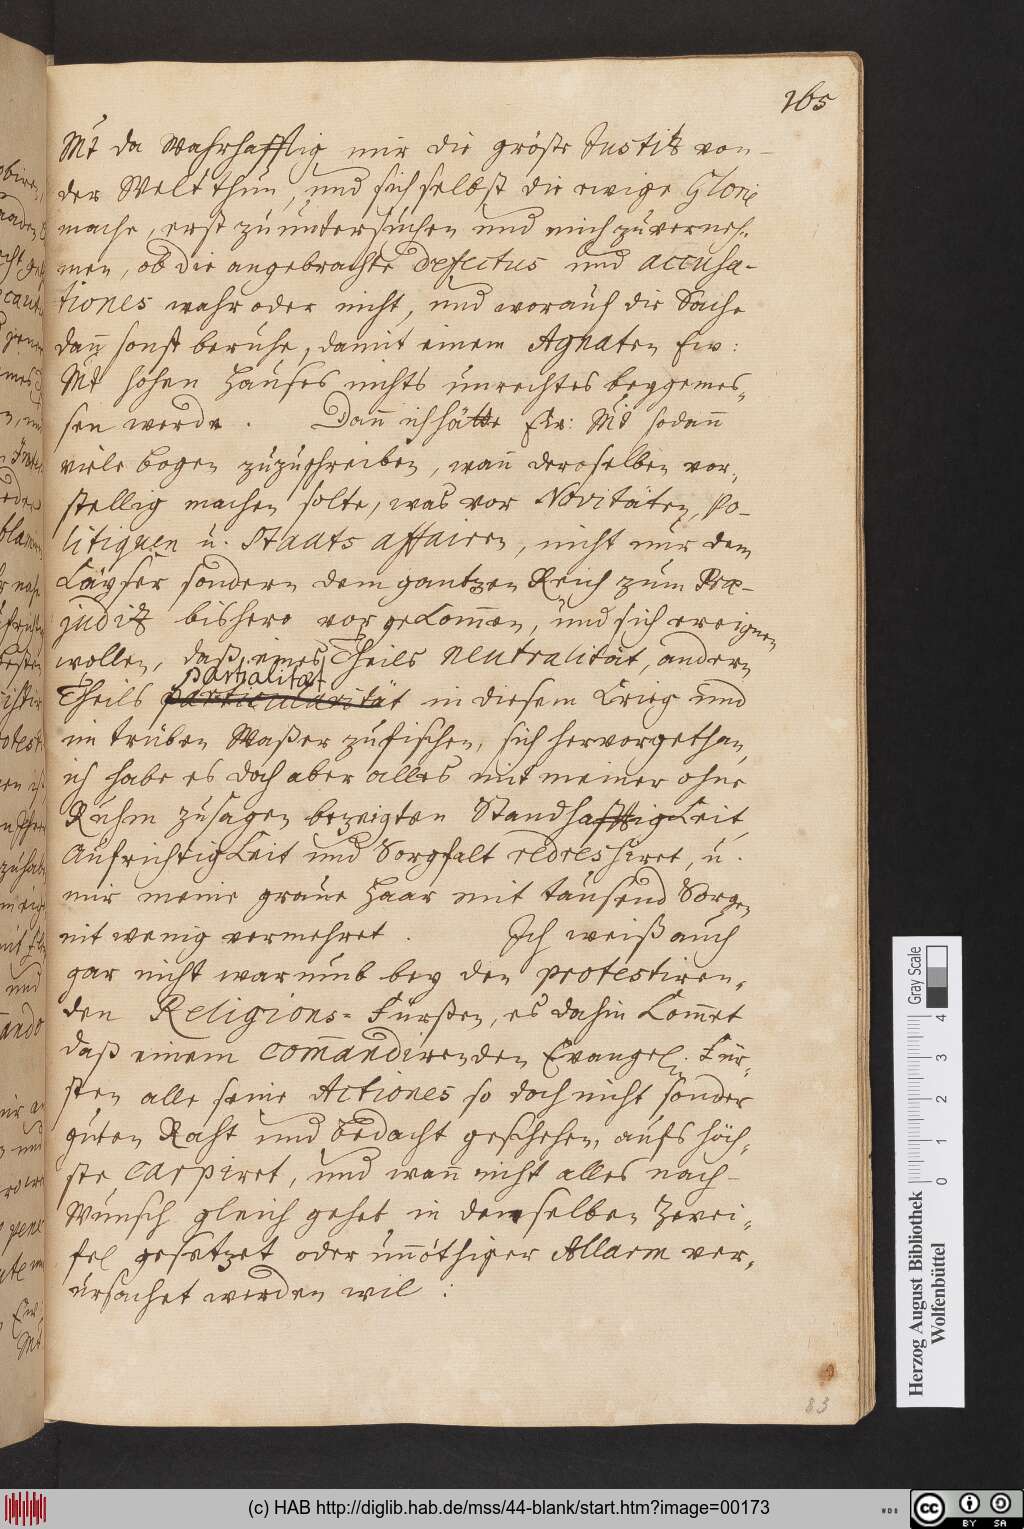 165
Mt da Wahrhafftig mir die gröste Justitz von
der Welt thun, und sich selbst die ewige Glorie
mache, erst zu untersuchen und mich zuverneh-
men, ob die angebrachte defectus und accusa-
tiones wahr oder nicht, und worauf die Sache
dann sonst beruhe, damit einem Agnaten Ew:
Mt hohen Hauses nichts unrechtes beygemes-
sen werde. Dann ich hätte Ew: Mt sodann
viele bogen zuzuschreiben, wann deroselben vor-
stellig machen solte, was vor Novitäten, Po-
litiquen u. Staats affairen, nicht nur dem
Käyser sondern dem gantzen Reich zum Præ-
juditz bishero vorgekommen, und sich ereignen
wollen, daß eines Theils neutralität, andern
partialität
Theils particularität in diesem Krieg und
im trüben Waßer zufischen, sich hervorgethan,
ich habe es doch aber alles mit meiner ohne
Ruhm zusagen bezeigten Standhafftigkeit,
Aufrichtigkeit und Sorgfalt redressiret, u.
mir meine graue Haar mit tausend Sorgen
nit wenig vermehret. Ich weiß auch
gar nicht warumb bey den protestiren-
den Religions-Fürsten, es dahin kommet
daß einem commandirenden Evangel. Für-
sten alle seine Actiones so doch nicht sonder
guten Raht und bedacht geschehen, aufs höch-
ste carpiret, und wann nicht alles nach
Wunsch gleich gehet in demselben Zwei-
fel gesetzet oder unnöthiger Allarm ver-
ursachet werden wil:
83
Herzog August Bibliothek
Wolfenbüttel
0 1 2 3 4
Gray Scale
(c) HAB http://diglib.hab.de/mss/44-blank/start.htm?image=00173
WDB
cc BY SA